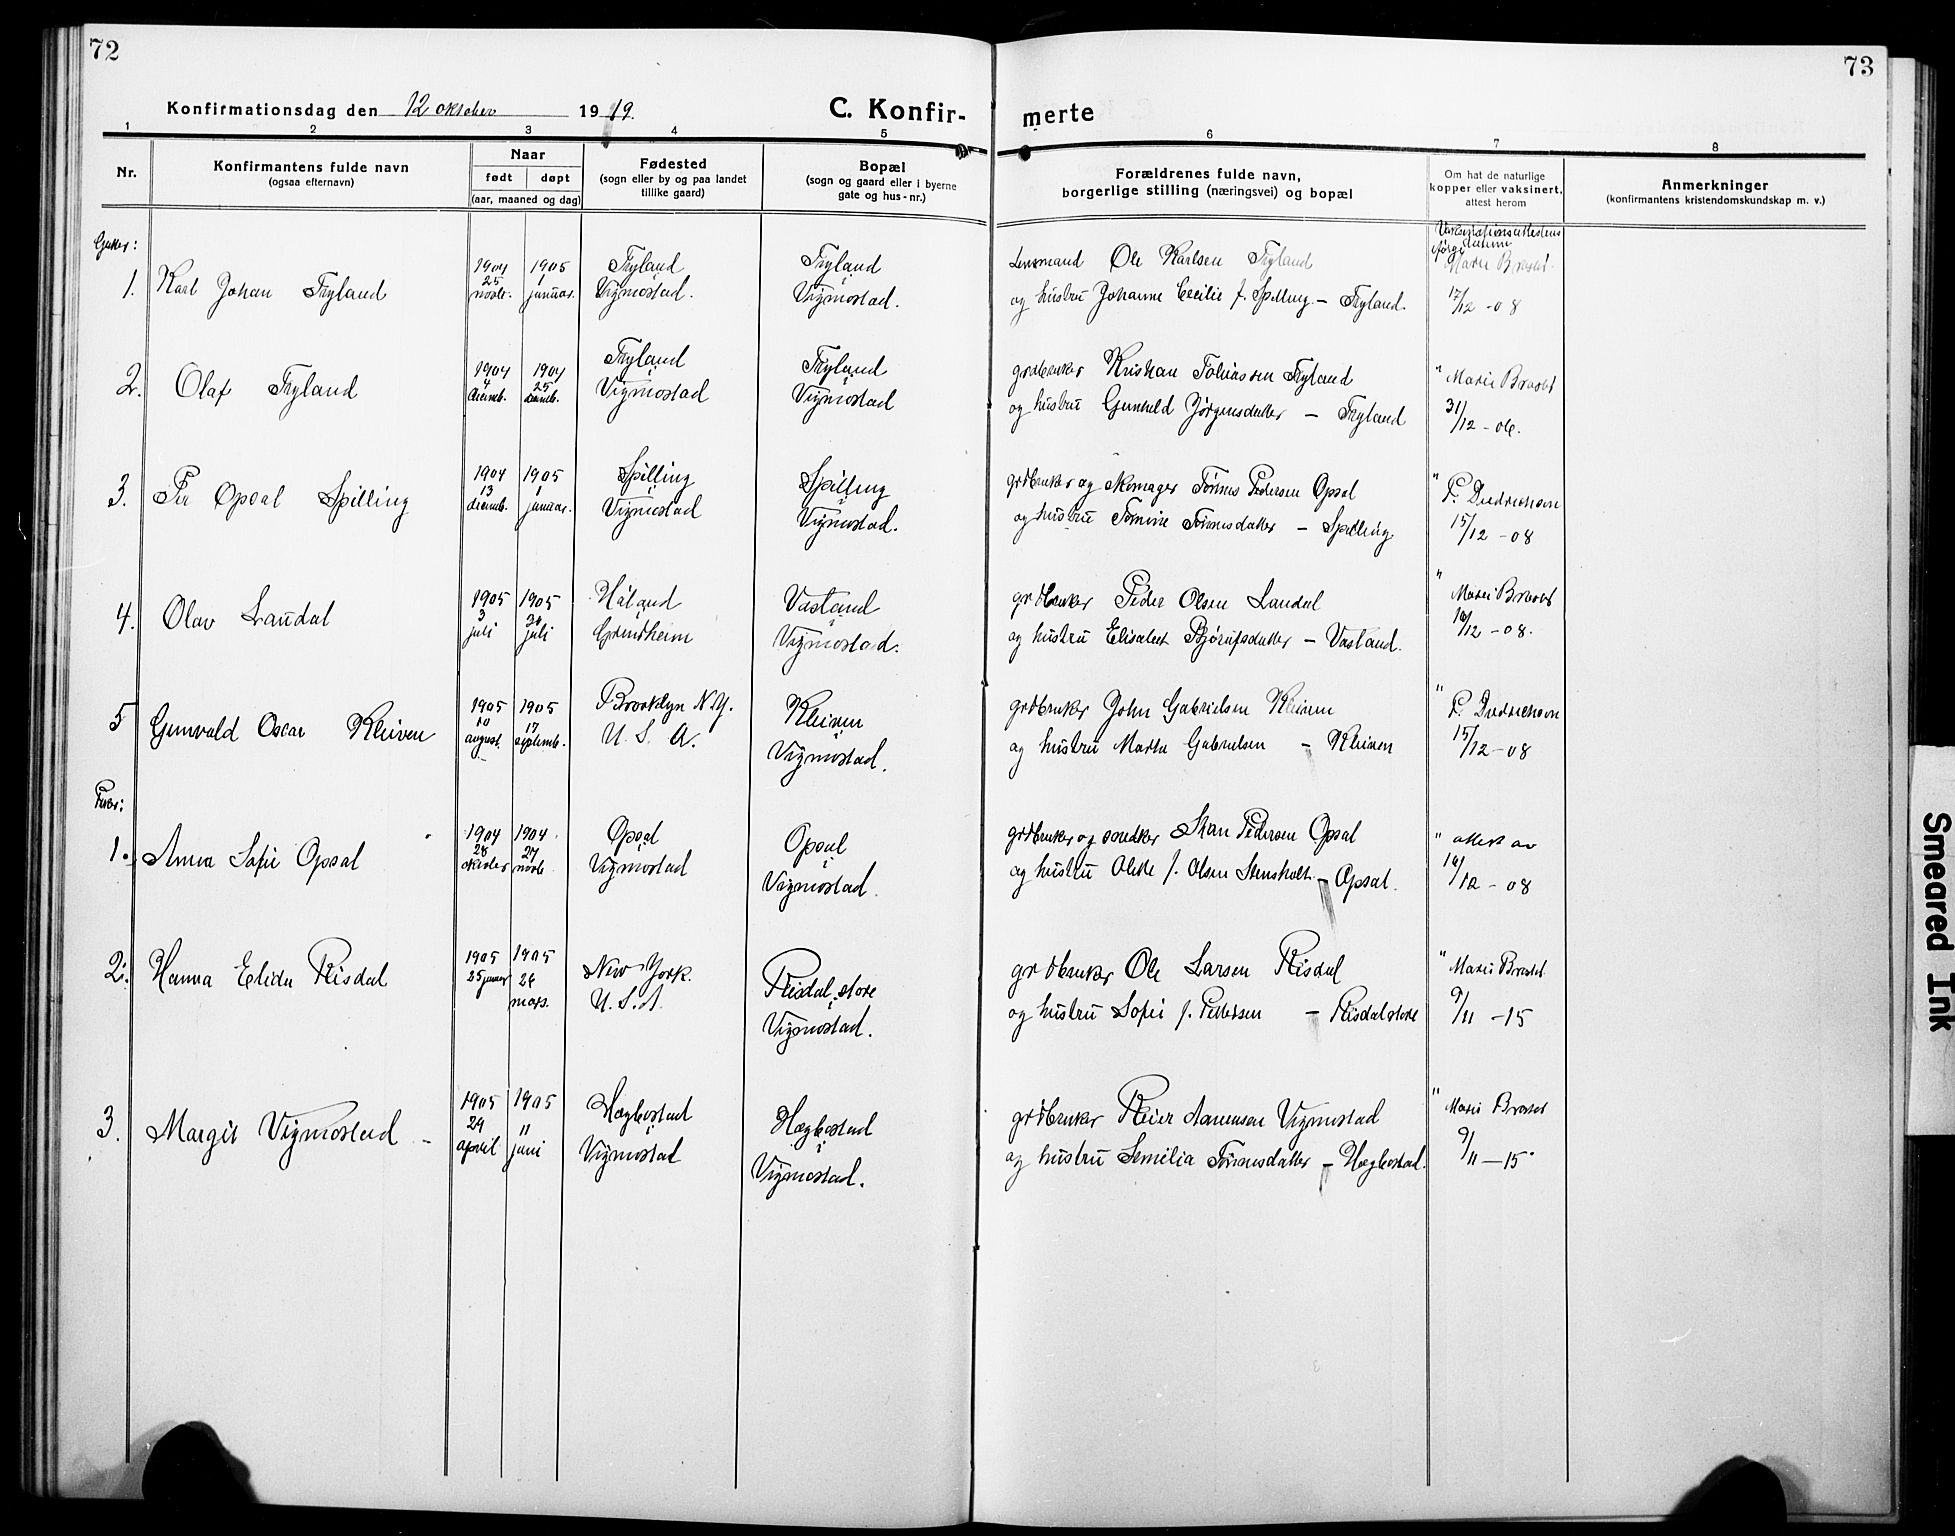 72
73
Konfirmationsdag den 12 oktober 1919.
C. Konfir-
merte
1 2 3 4 5 6 7 8
Nr.
Konfirmantens fulde navn
(ogsaa efternavn)
Naar
født døpt
(aar, maaned og dag)
Fødested
(sogn eller by og paa landet
tillike gaard)
Bopæl
(sogn og gaard eller i byerne
gate og hus-nr.)
Forældrenes fulde navn,
borgerlige stilling (næringsvei) og bopæl
Om hat de naturlige
kopper eller vaksinert,
attest herom
Anmerkninger
(konfirmantens kristendomskundskap m. v.)
Gutter:
1. Karl Johan Tryland
1904 25 novbr.
1905 1 januar.
Tryland i
Vigmostad.
Tryland i
Vigmostad.
Lensmand Ole Karlsen Tryland
og hustru Johanne Cecilie f. Spilling - Tryland.
17/12 - 08
2. Olaf Tryland
1904 4 decemb.
1904 25 decemb.
Tryland i
Vigmostad
Tryland i
Vigmostad
grdbruker Kristian Tobiassen Tryland
og hustru Gunhild Jörgensdatter - Tryland
" Marie Brastad
31/12 - 06.
3. Per Opsal Spilling
1904 13 decemb.
1905 1 januar.
Spilling i
Vigmostad
Spilling i
Vigmostad.
grdbruker og skomager Tönnes Pedersen Opsal
og hustru Tomine Tönnesdatter - Spilling
"
15/12 - 08
4. Olav Laudal
1905 3 juli
1905 30 juli
Håland i
Grindheim
Vastand i
Vigmostad.
grdbruker Peder Olsen Laudal
og hustru Elisabet - Vastand.
" Marie Brastad
/12 - 08.
5 Gunvald Oscar Kleiven
1905 10 august.
1905 17 septemb.
Brooklyn N.Y.
U. S. A.
Kleiven i
Vigmostad.
grdbruker John Gabrielsen Kleiven
og hustru Marta Gabrielsen - Kleiven
"
15/12 - 08
Piker:
1. Anna Sofie Opsal
1904 28 oktober
1904 27 novbr.
Opsal i
Vigmostad
Opsal i
Vigmostad.
grdbruker og snedker Pedersen Opsal
og hustru f. Olsen Stensholt - Opsal.
" attest av
/12 - 08
2. Hanna Elida Risdal
1905 25 januar
1905 26 mars.
New York.
U. S. A.
Risdal store i
Vigmostad.
grdbruker Ole Larsen Risdal
og hustru Sofie f. Pettersen - Risdal store
" Marie Brastad
9/11 - 15
3. Margit Vigmostad
1905 29 april
1905 11 juni
Hægbostad i
Vigmostad
Hægbostad i
Vigmostad.
grdbruker Reier Aanensen Vigmostad
og hustru Semilia Tönnesdatter - Hægbostad.
" Marie Brastad
9/11 - 15
Smeared Ink